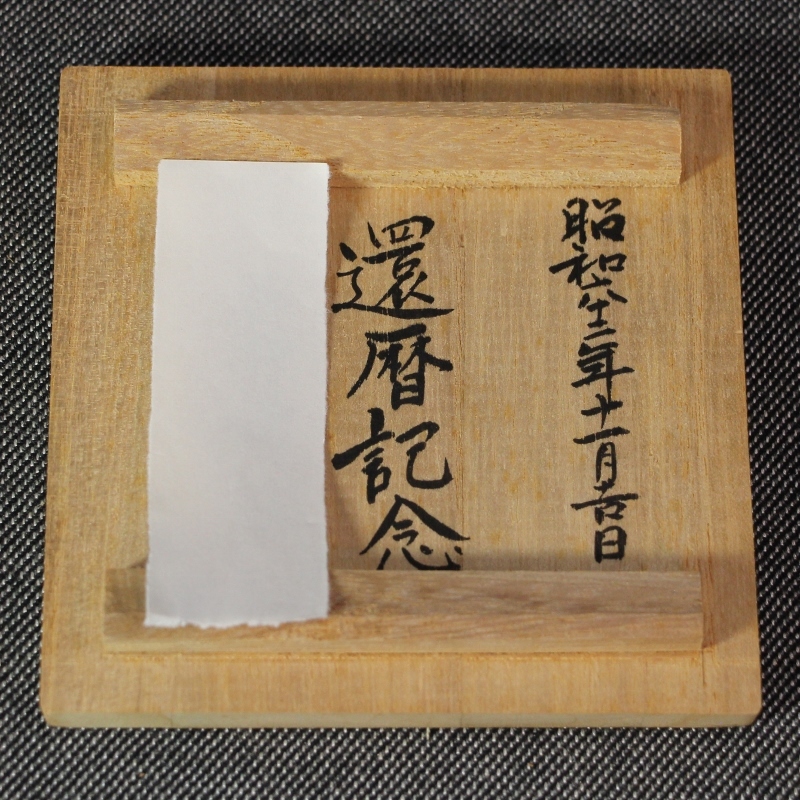 昭和六十三年十一月吉日
還暦記念